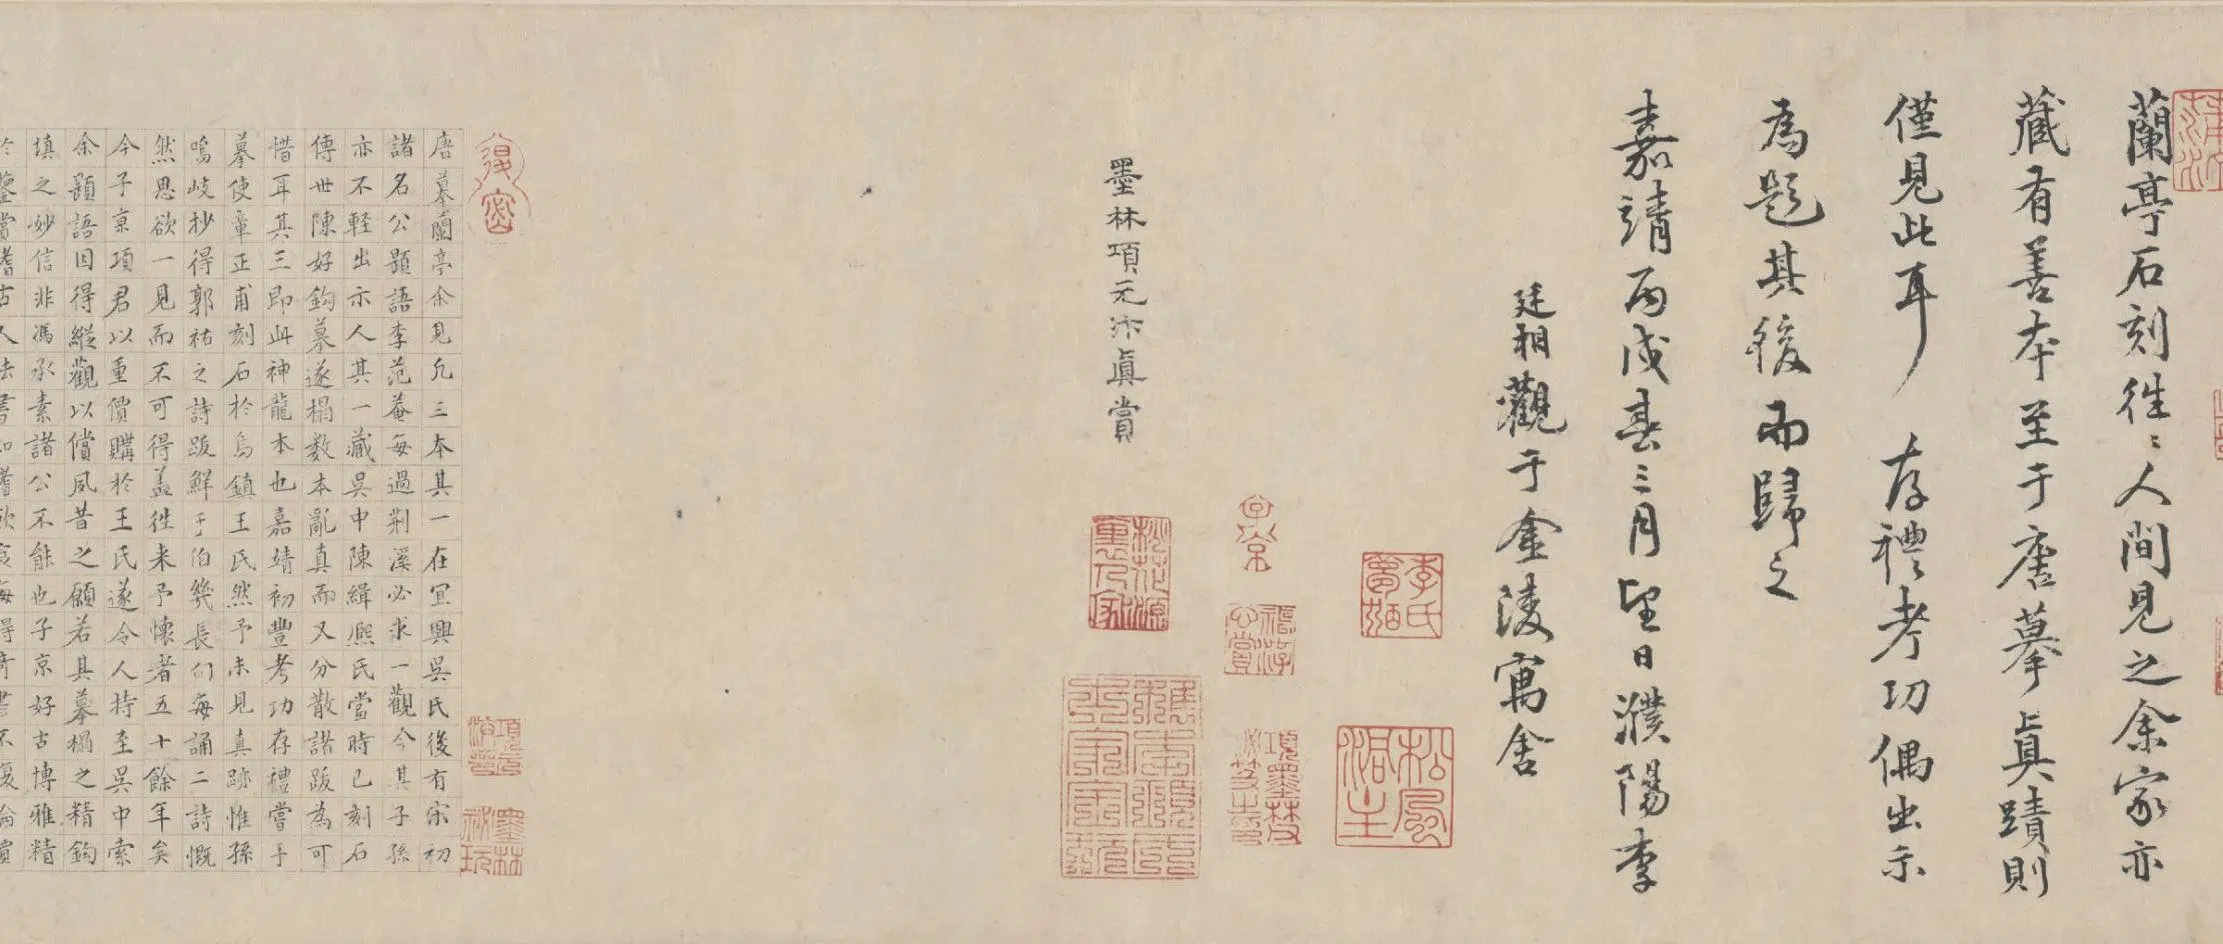 蘭亭石刻徃〻人間見之余家亦
藏有善本至于唐摹真蹟則
僅見此耳 存禮考功偶出示
為題其後而歸之
嘉靖丙戌春三月望日濮陽李
廷相觀于金陵寓舍
李氏
松風
墨林項元汴真賞
子京
項墨林
唐摹蘭亭余見凡三本其一在宜興吳氏後有宋初
諸名公題語李范菴每過荊溪必求一觀今其子孫
亦不軽出示人其一藏吳中陳緝熈氏當時已刻石
傳世陳好鈎摹遂榻数本亂真而又分散諸跋為可
惜耳其三即此神龍本也嘉靖初豐考功存禮嘗手
摹使章正甫刻石於烏鎮王氏然予未見真跡惟孫
鳴岐抄得郭祐之詩跋鮮于伯幾長句每誦二詩慨
然思欲一見而不可得盖徃来予懷者五十餘年矣
今子京項君以重價購於王氏遂令人持至吳中索
余題語因得縱觀以償夙昔之願若其摹榻之精鈎
填之妙信非馮承素諸公不能也子京好古博雅精
於鑒賞嗜古人法書如嗜飲